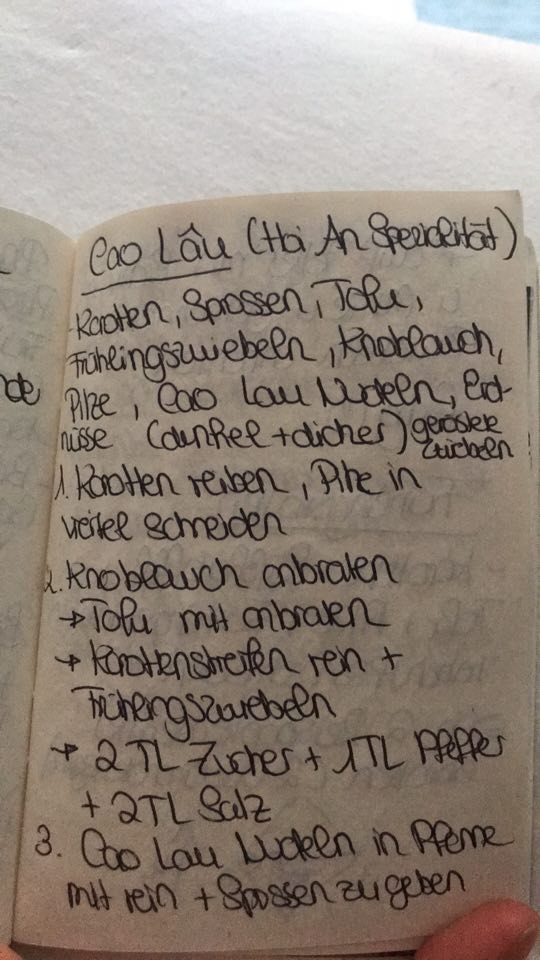 Cao Lâu (Hoi An Spezialität)
- Karotten, Sprossen, Tofu,
Frühlingszwiebeln, Knoblauch,
Pilze, Cao Lau Nudeln, Erd-
nüsse (dunkel + dicker) geröstete
Zwiebeln
1. Karotten reiben, Pilze in
viertel schneiden
2. Knoblauch anbraten
→ Tofu mit anbraten
→ Karottenstreifen rein +
Frühlingszwiebeln
→ 2 TL Zucker + 1 TL Pfeffer
+ 2 TL Salz
3. Cao Lau Nudeln in Pfanne
mit rein + Sprossen zugeben